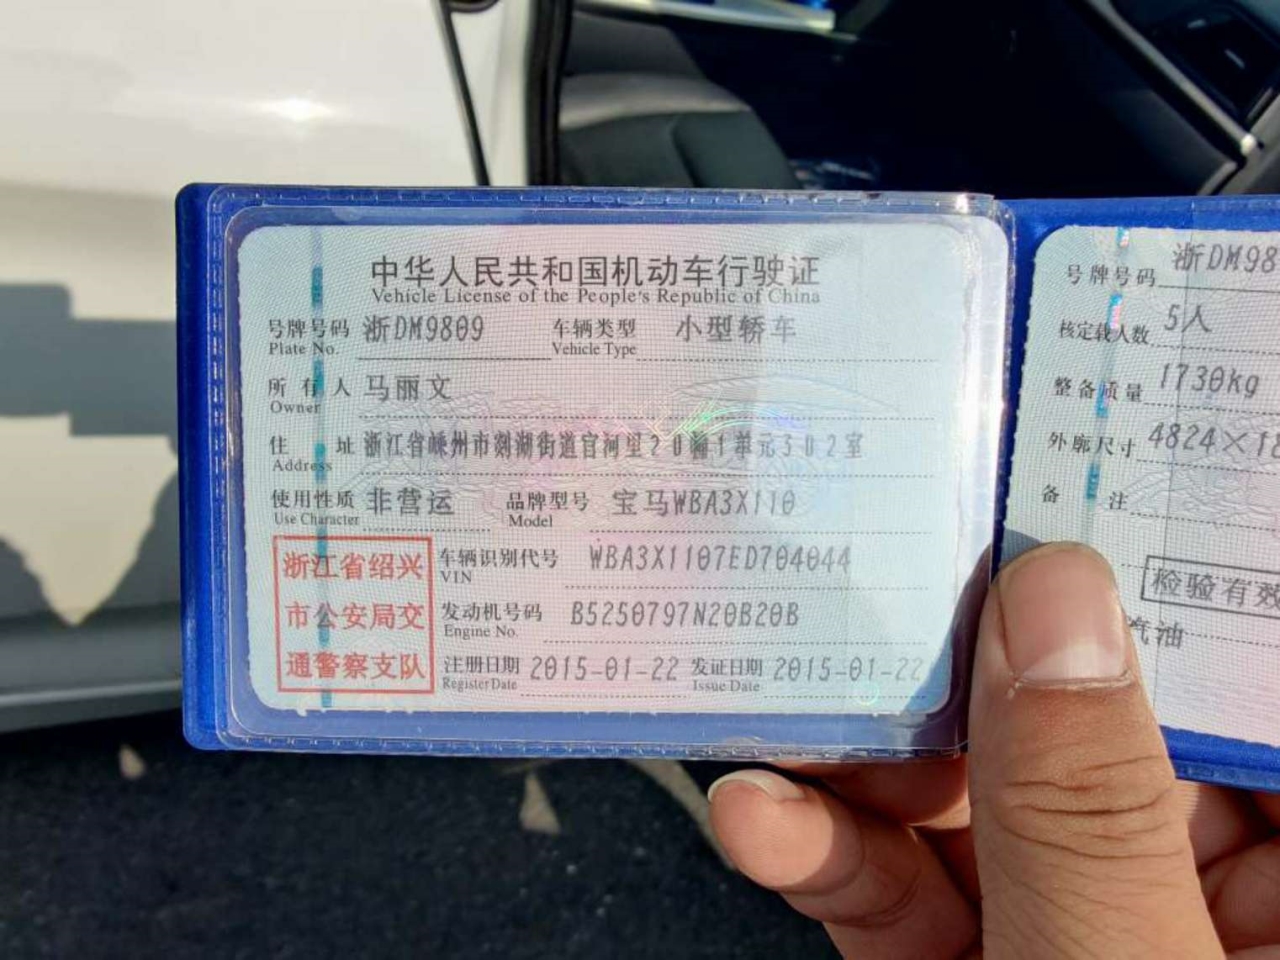 中华人民共和国机动车行驶证
Vehicle License of the People's Republic of China
号牌号码 浙DM9809 车辆类型 小型轿车
Plate No. Vehicle Type
所有人 马丽文
Owner
住址 浙江省嵊州市剡湖街道官河里20幢1单元302室
Address
使用性质 非营运 品牌型号 宝马WBA3X110
Use Character Model
浙江省绍兴
市公安局交
通警察支队
车辆识别代号 WBA3X1107ED704044
VIN
发动机号码 B5250797N20B20B
Engine No.
注册日期 2015-01-22 发证日期 2015-01-22
Register Date Issue Date
号牌号码 浙DM98
核定载人数 5人
整备质量 1730kg
外廓尺寸 4824×18
备注
检验有效
汽油